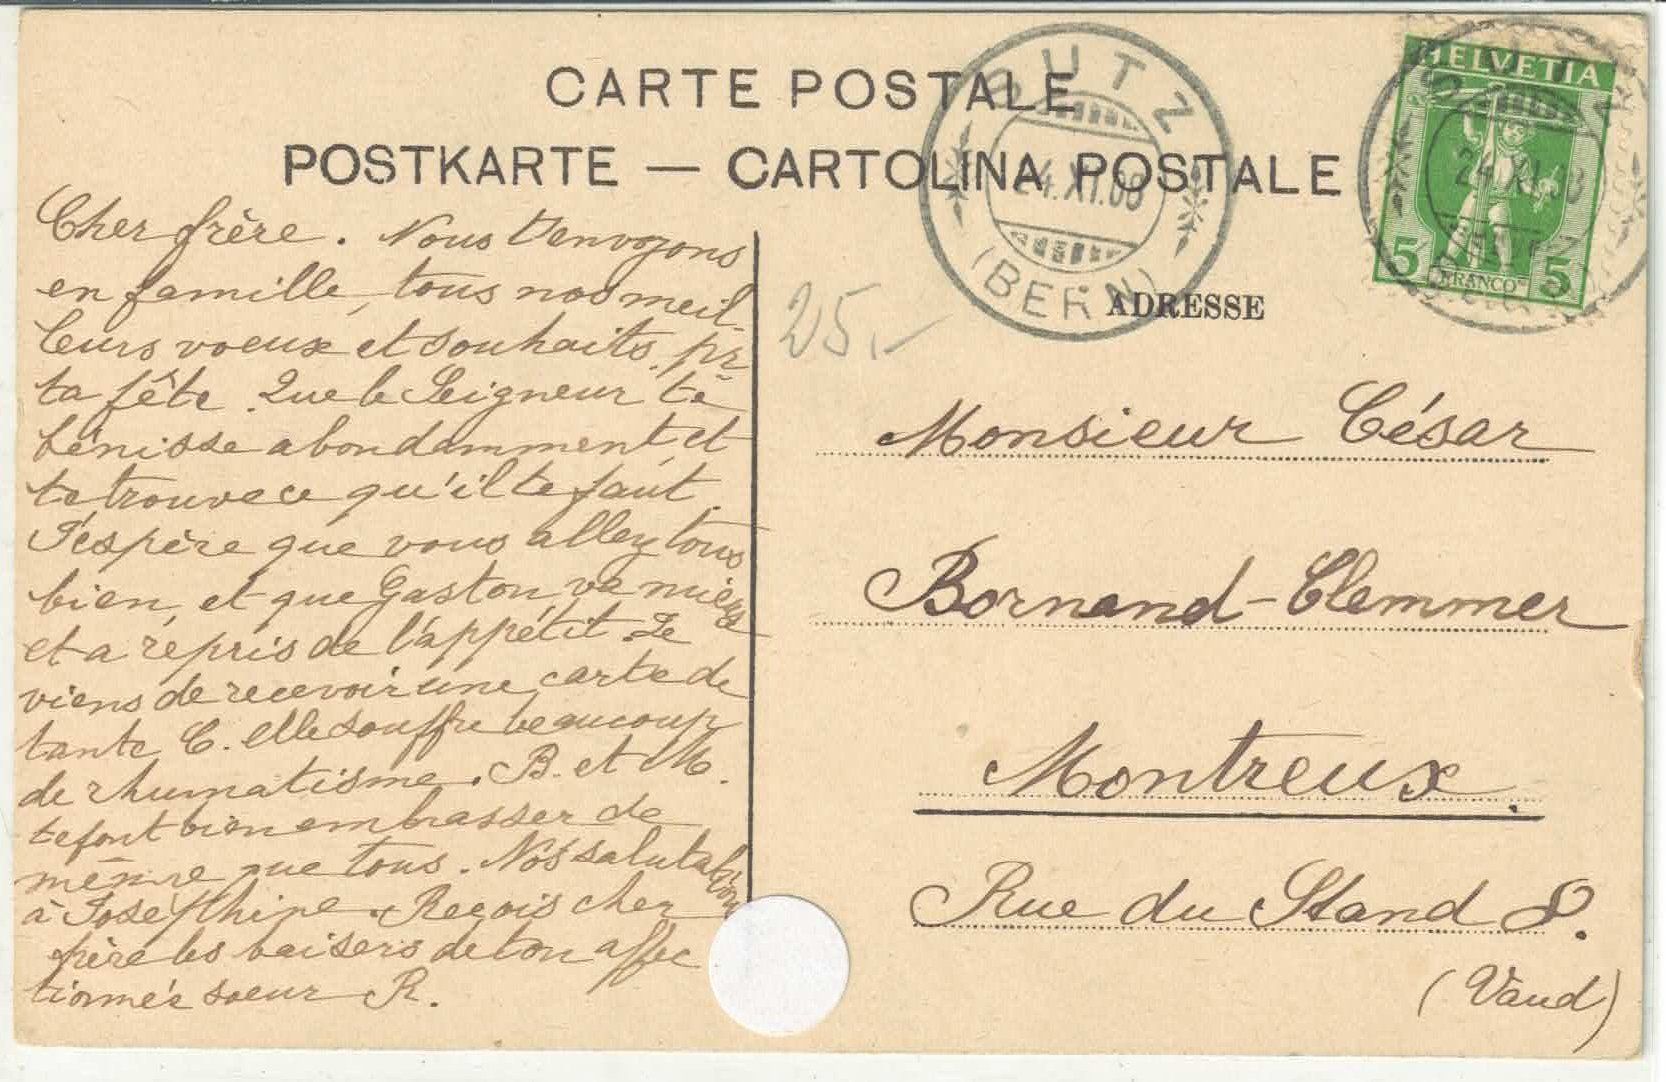 CARTE POSTALE
POSTKARTE — CARTOLINA POSTALE
SUTZ
24.XI.09
(BERN)
HELVETIA
5 FRANCO 5
SUTZ
24.XI.09
ADRESSE
25.-
Cher frère. Nous t'envoyons
en famille, tous nos meil-
leurs voeux et souhaits pr
ta fête. Que le Seigneur te
bénisse abondamment, et
te trouve ce qu'il te faut.
J'espère que vous allez tous
bien, et que Gaston va mieux
et a repris de l'appétit. Je
viens de recevoir une carte de
tante C. elle souffre beaucoup
de rhumatisme. B. et M.
te font bien embrasser de
même que tous. Nos salutations
à Joséphine. Reçois cher
frère les baisers de ton affec
tionnée soeur R.
Monsieur César
Bornand-Clemmer
Montreux.
Rue du Stand 8.
(Vaud)